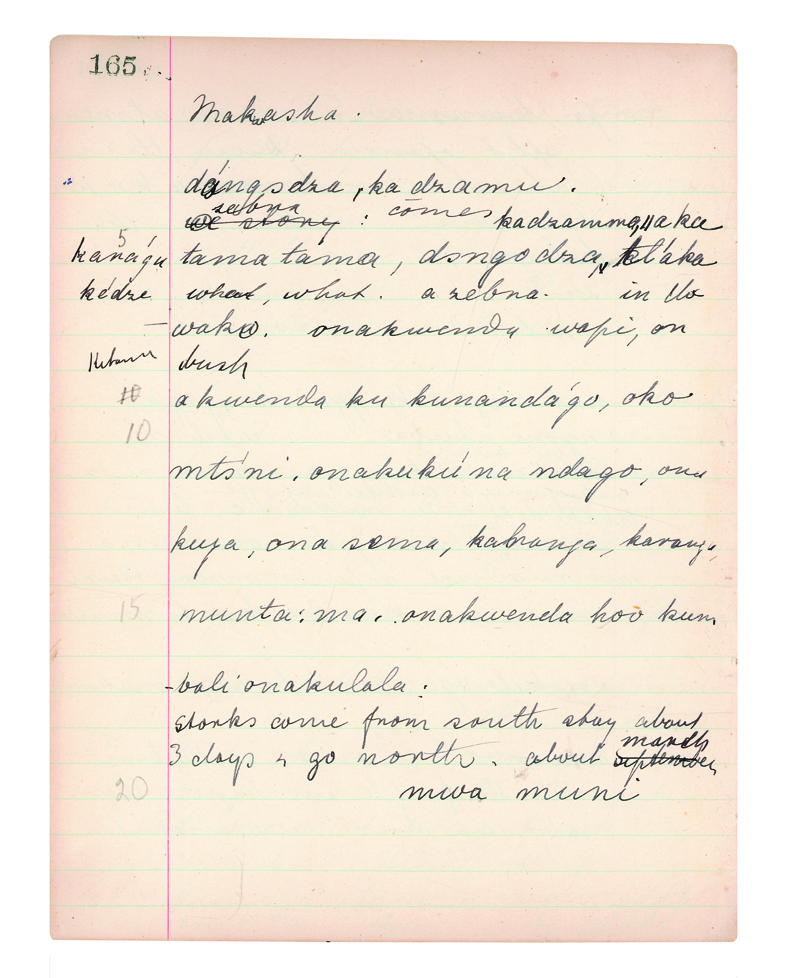 165
Makwasha.
dángsdza, ka dzamu.
zebna
story : comes kadzamma, aka
5
tama tama, dsngodza, kt'áka
kédze what, what. a zebna. in do
wako. onakwenda wapi, on
bush
10
akwenda ku kunandágo, oko
10
mtśni. onakukúna ndago, ona
kuja, ona soma, kabranga, karanga,
15
munta:ma. onakwenda hoo kum
-bali onakulala:
storks come from south stay about
march
3 days & go north. about september
20
mwa muni